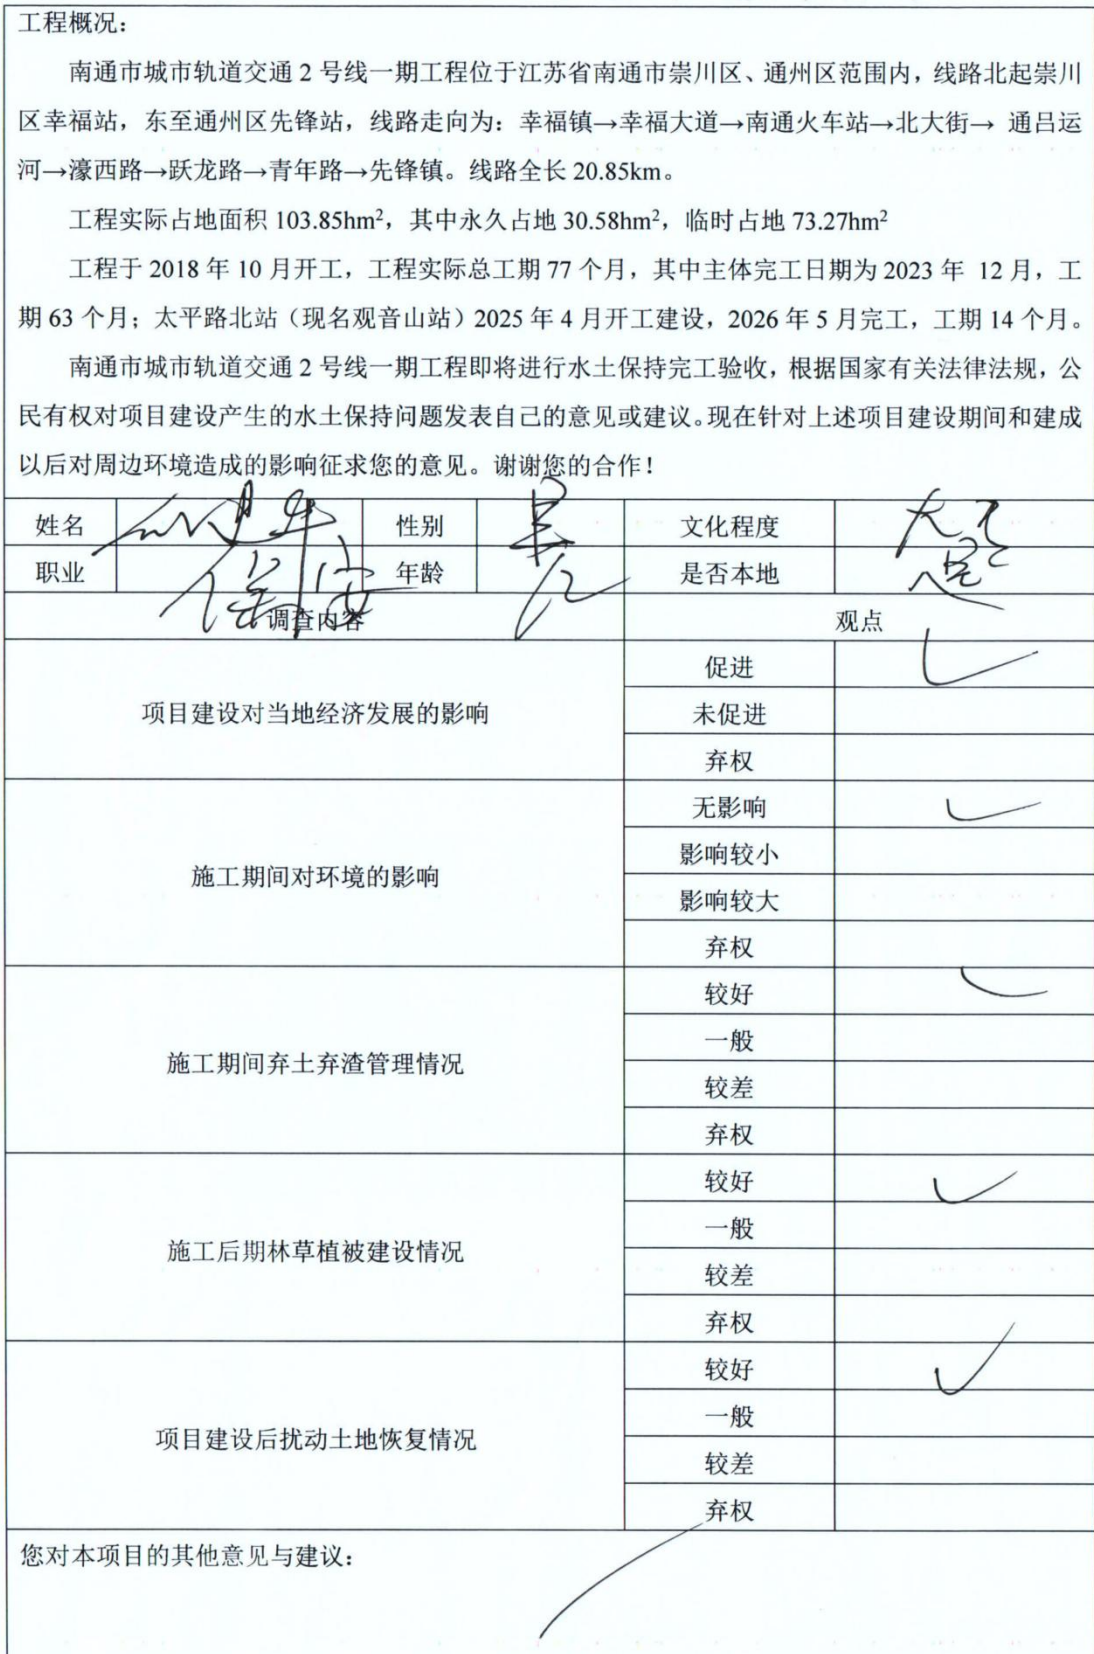 工程概况：
南通市城市轨道交通 2 号线一期工程位于江苏省南通市崇川区、通州区范围内，线路北起崇川
区幸福站，东至通州区先锋站，线路走向为：幸福镇→幸福大道→南通火车站→北大街→ 通吕运
河→濠西路→跃龙路→青年路→先锋镇。线路全长 20.85km。
工程实际占地面积 103.85hm²，其中永久占地 30.58hm²，临时占地 73.27hm²
工程于 2018 年 10 月开工，工程实际总工期 77 个月，其中主体完工日期为 2023 年 12 月，工
期 63 个月；太平路北站（现名观音山站）2025 年 4 月开工建设，2026 年 5 月完工，工期 14 个月。
南通市城市轨道交通 2 号线一期工程即将进行水土保持完工验收，根据国家有关法律法规，公
民有权对项目建设产生的水土保持问题发表自己的意见或建议。现在针对上述项目建设期间和建成
以后对周边环境造成的影响征求您的意见。谢谢您的合作！
姓名 性别 男 文化程度
职业 保安 年龄 是否本地 是
调查内容 观点
项目建设对当地经济发展的影响
促进 ✓
未促进
弃权
施工期间对环境的影响
无影响 ✓
影响较小
影响较大
弃权
施工期间弃土弃渣管理情况
较好 ✓
一般
较差
弃权
施工后期林草植被建设情况
较好 ✓
一般
较差
弃权
项目建设后扰动土地恢复情况
较好 ✓
一般
较差
弃权
您对本项目的其他意见与建议：